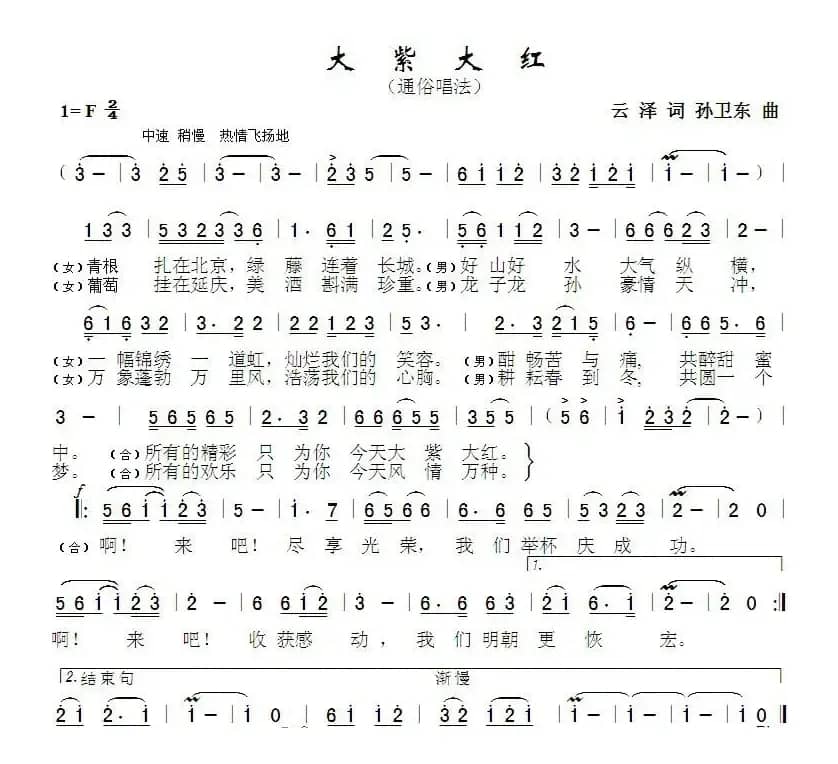 大 紫 大 红
(通俗唱法)
1= F 2/4
云 泽 词 孙卫东 曲
中速 稍慢 热情飞扬地
( 3 – | 3 2 5 | 3 – | 3 – | 2 3 5 | 5 – | 6 1 1 2 | 3 2 1 2 1 | 1 – | 1 – ) |
1 3 3 | 5 3 2 3 3 6 | 1 · 6 1 | 2 5 · | 5 6 1 1 2 | 3 – | 6 6 6 2 3 | 2 – |
(女)青根 扎在北京,绿 藤 连着 长城。(男)好 山好 水 大气 纵 横,
(女)葡萄 挂在延庆,美 酒 斟满 珍重。(男)龙 子龙 孙 豪情 天 冲,
6 1 6 3 2 | 3 · 2 2 | 2 2 1 2 3 | 5 3 · | 2 · 3 2 1 5 | 6 – | 6 6 5 · 6 |
(女)一 幅锦绣 一 道虹,灿烂我们的 笑容。(男)酣 畅苦 与 痛, 共醉甜 蜜
(女)万 象蓬勃 万 里风,浩荡我们的 心胸。(男)耕 耘春 到 冬, 共圆一 个
3 – | 5 6 5 6 5 | 2 · 3 2 | 6 6 6 5 5 | 3 5 5 | ( 5 6 | 1 2 3 2 | 2 – ) |
中。 (合)所有的精彩 只 为你 今天大 紫 大红。
梦。 (合)所有的欢乐 只 为你 今天风 情 万种。
f
‖: 5 6 1 1 2 3 | 5 – | 1 · 7 | 6 5 6 6 | 6 · 6 6 5 | 3 5 3 2 3 | 2 – | 2 0 |
(合) 啊! 来 吧! 尽 享 光 荣, 我 们 举杯 庆 成 功。
1.
5 6 1 1 2 3 | 2 – | 6 6 6 1 2 | 3 · | 6 · 6 6 3 | 2 1 6 · 1 | 2 – | 2 0 :‖
啊! 来 吧! 收 获感 动, 我 们 明朝 更 恢 宏。
2. 结束句 渐慢
2 1 2 · 1 | 1 – | 1 0 | 6 1 1 2 | 3 2 1 2 1 | 1 – | 1 – | 1 0 ‖